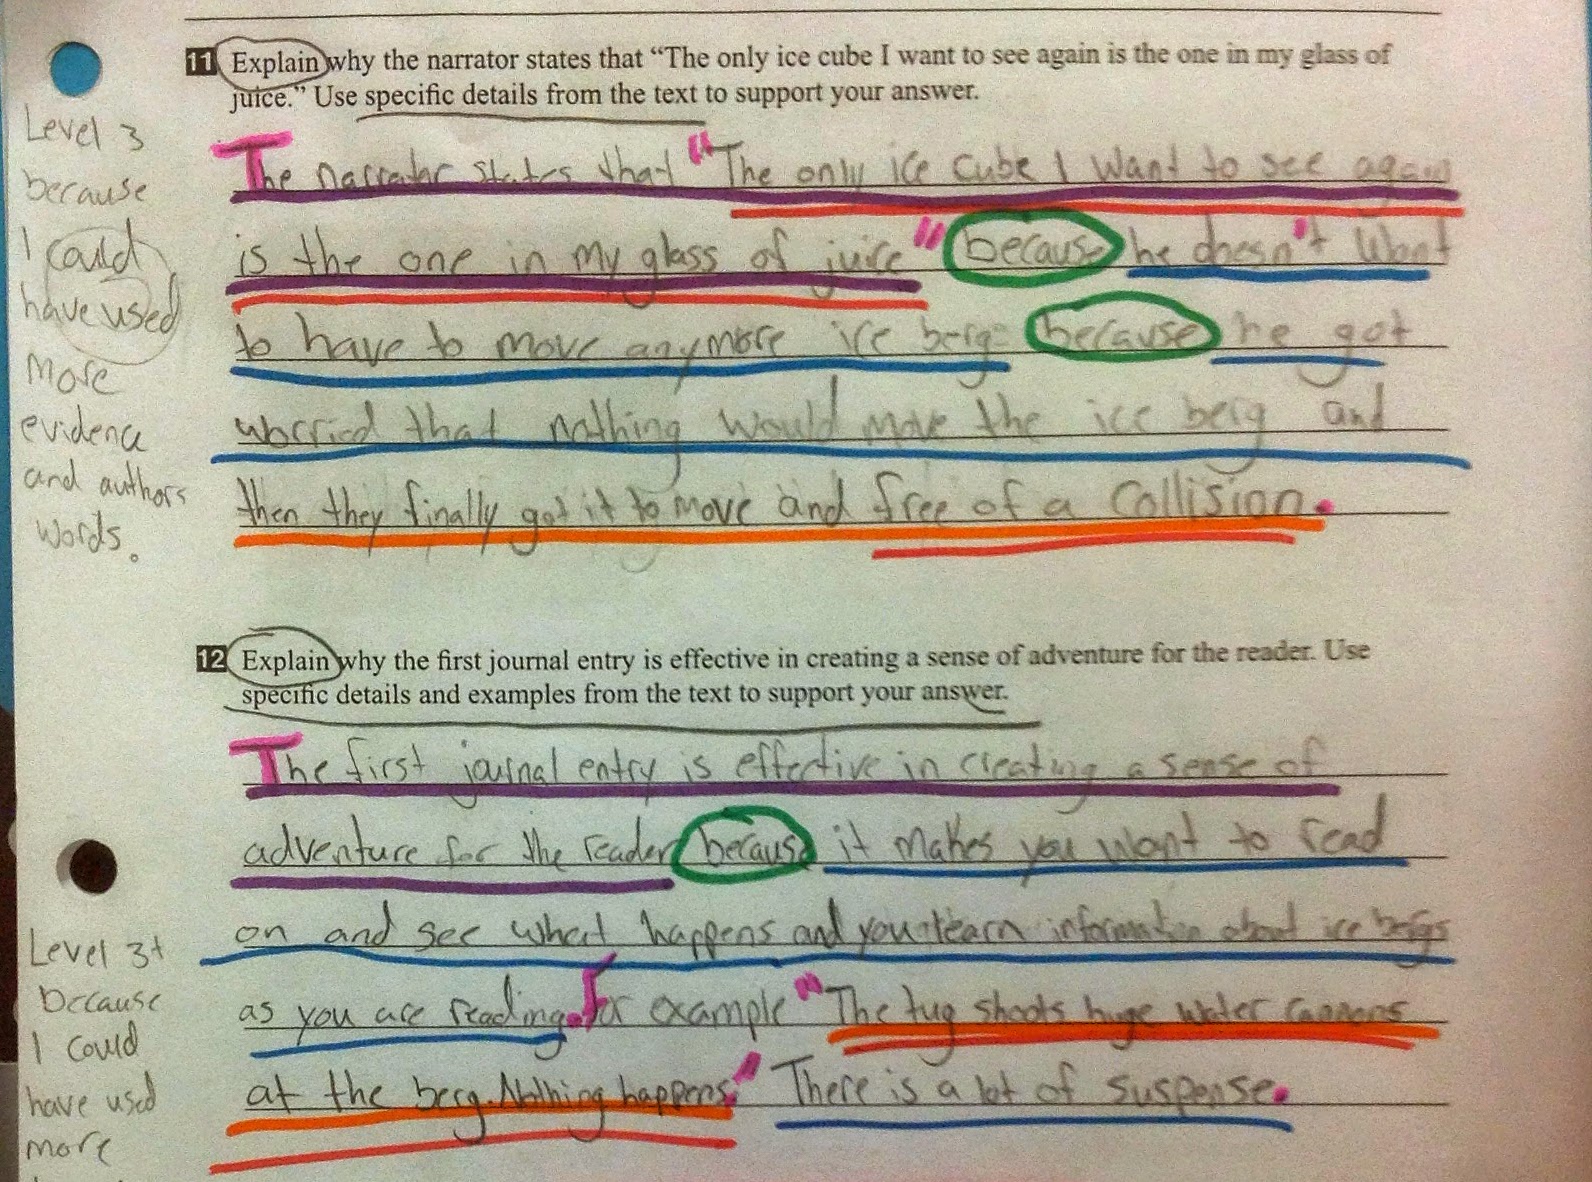 11 Explain why the narrator states that “The only ice cube I want to see again is the one in my glass of
juice.” Use specific details from the text to support your answer.
Level 3
because
I could
have used
more
evidence
and authors
words.
The narrator states that "The only ice cube I want to see again
is the one in my glass of juice" because he doesn't want
to have to move anymore ice berg because he got
worried that nothing would move the ice berg and
then they finally got it to move and free of a collision.
12 Explain why the first journal entry is effective in creating a sense of adventure for the reader. Use
specific details and examples from the text to support your answer.
The first journal entry is effective in creating a sense of
adventure for the reader because it makes you want to read
on and see what happens and you learn information about ice bergs
as you are reading. For example "The tug shoots huge water cannons
at the berg. Nothing happens." There is a lot of suspense.
Level 3+
because
I could
have used
more